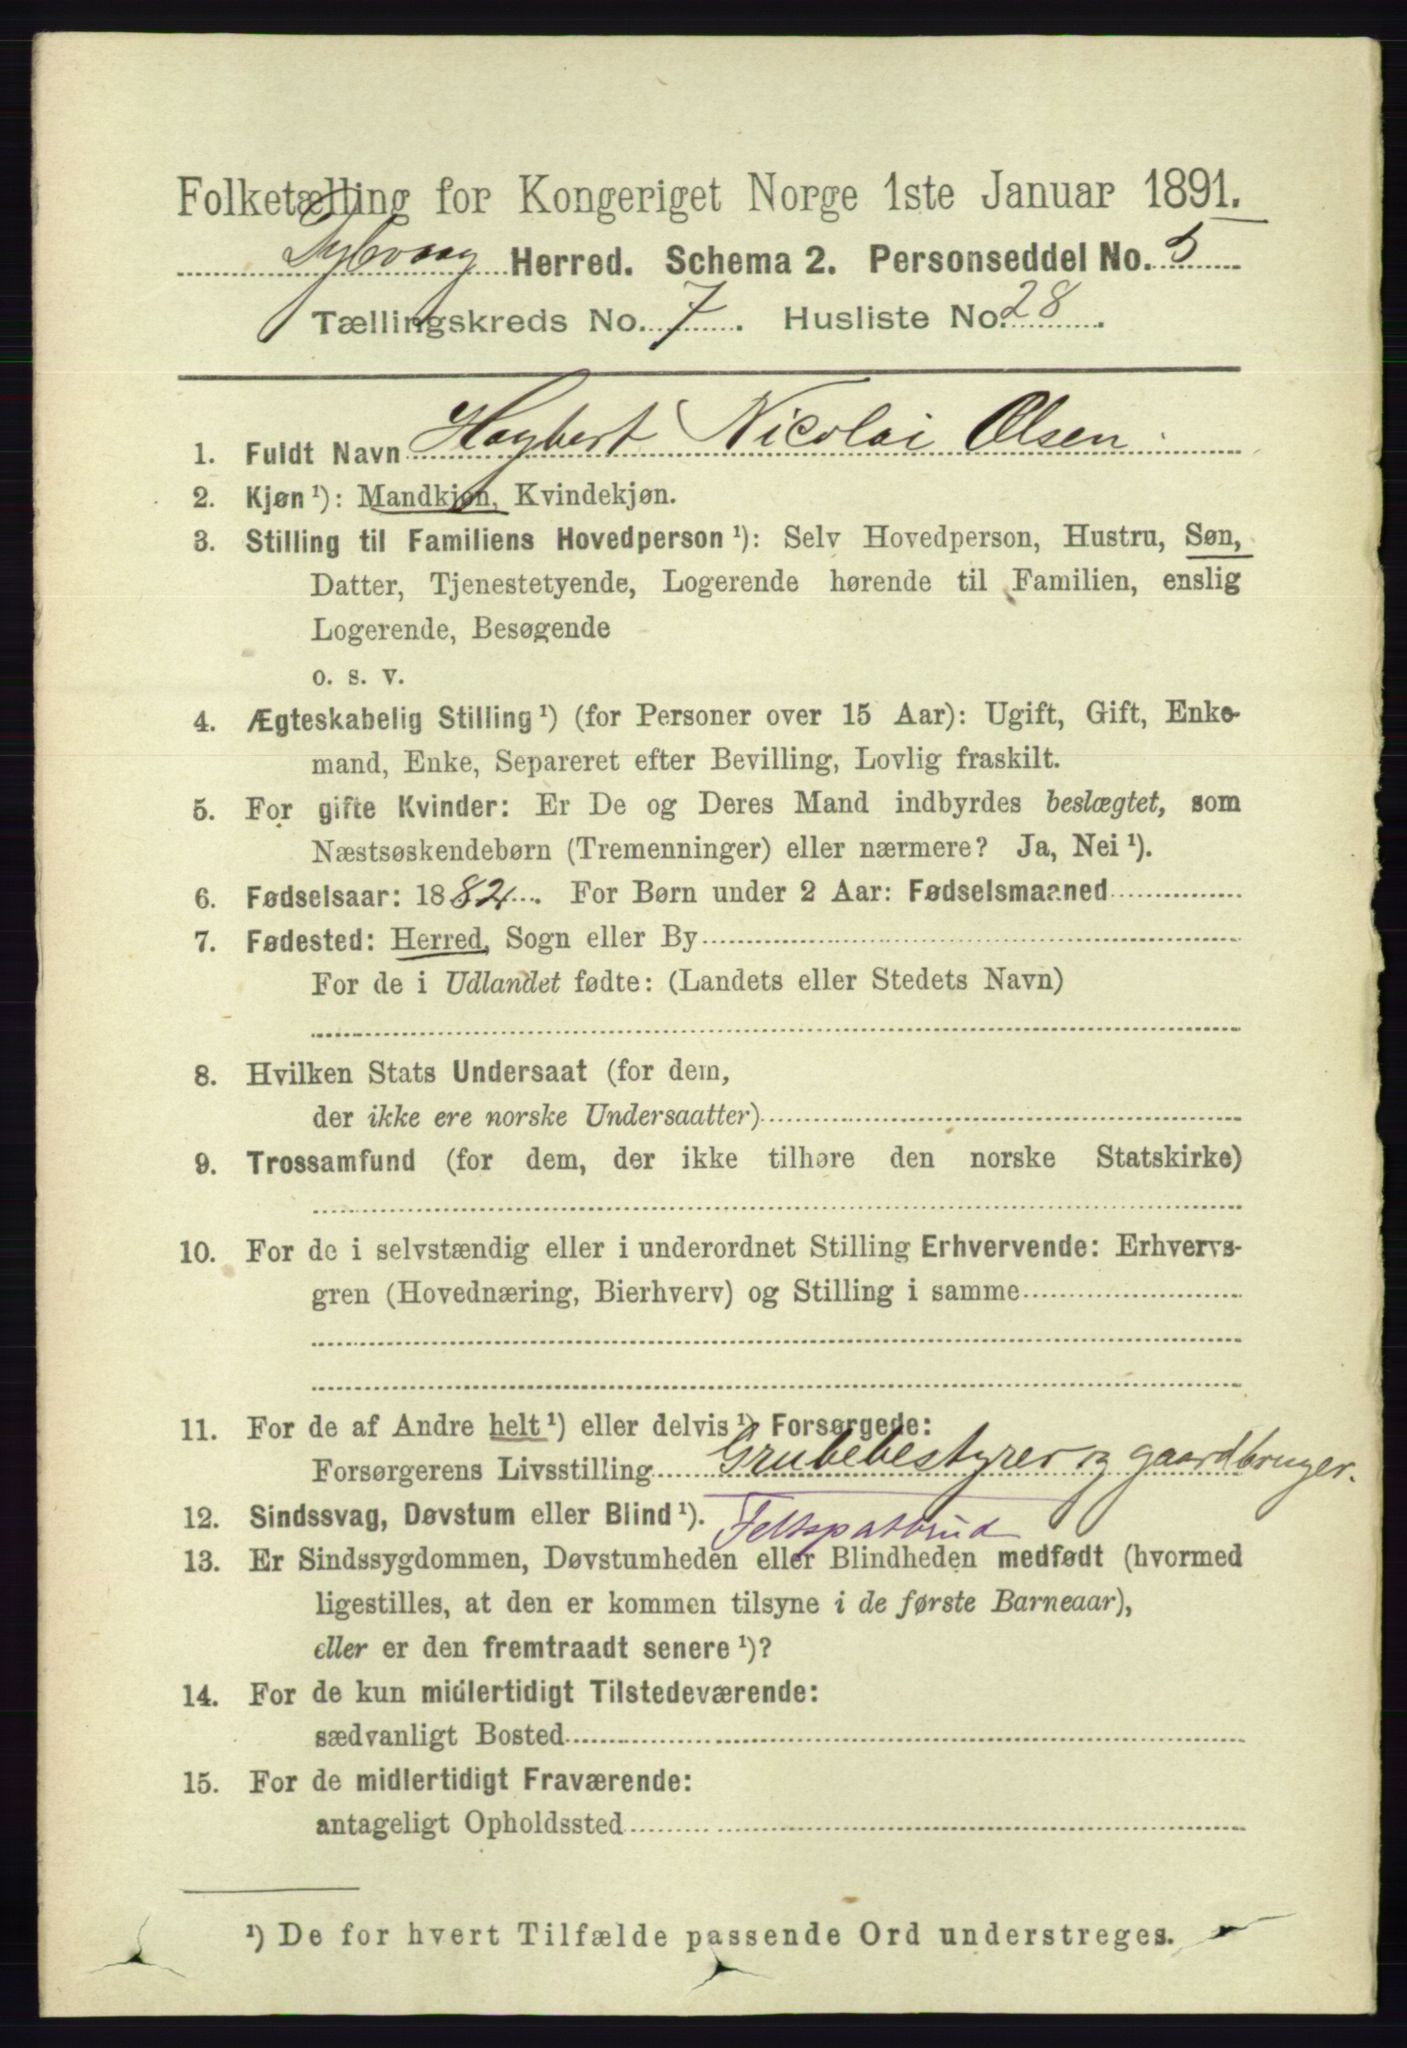 Folketælling for Kongeriget Norge 1ste Januar 1891.
Dybvaag Herred. Schema 2. Personseddel No. 5
Tællingskreds No. 7. Husliste No. 28.
1. Fuldt Navn Haybert Nicolai Olsen.
2. Kjøn¹): Mandkjøn, Kvindekjøn.
3. Stilling til Familiens Hovedperson¹): Selv Hovedperson, Hustru, Søn,
Datter, Tjenestetyende, Logerende hørende til Familien, enslig
Logerende, Besøgende
o. s. v.
4. Ægteskabelig Stilling¹) (for Personer over 15 Aar): Ugift, Gift, Enke-
mand, Enke, Separeret efter Bevilling, Lovlig fraskilt.
5. For gifte Kvinder: Er De og Deres Mand indbyrdes beslægtet, som
Næstsøskendebørn (Tremenninger) eller nærmere? Ja, Nei¹).
6. Fødselsaar: 1882. For Børn under 2 Aar: Fødselsmaaned
7. Fødested: Herred, Sogn eller By
For de i Udlandet fødte: (Landets eller Stedets Navn)
8. Hvilken Stats Undersaat (for dem,
der ikke ere norske Undersaatter)
9. Trossamfund (for dem, der ikke tilhøre den norske Statskirke)
10. For de i selvstændig eller i underordnet Stilling Erhvervende: Erhvervs-
gren (Hovednæring, Bierhverv) og Stilling i samme
11. For de af Andre helt¹) eller delvis¹) Forsørgede:
Forsørgerens Livsstilling Grubebestyrer og gaardbruger.
12. Sindssvag, Døvstum eller Blind¹). Feltspatbrud
13. Er Sindssygdommen, Døvstumheden eller Blindheden medfødt (hvormed
ligestilles, at den er kommen tilsyne i de første Barneaar),
eller er den fremtraadt senere¹)?
14. For de kun midlertidigt Tilstedeværende:
sædvanligt Bosted
15. For de midlertidigt Fraværende:
antageligt Opholdssted
¹) De for hvert Tilfælde passende Ord understreges.